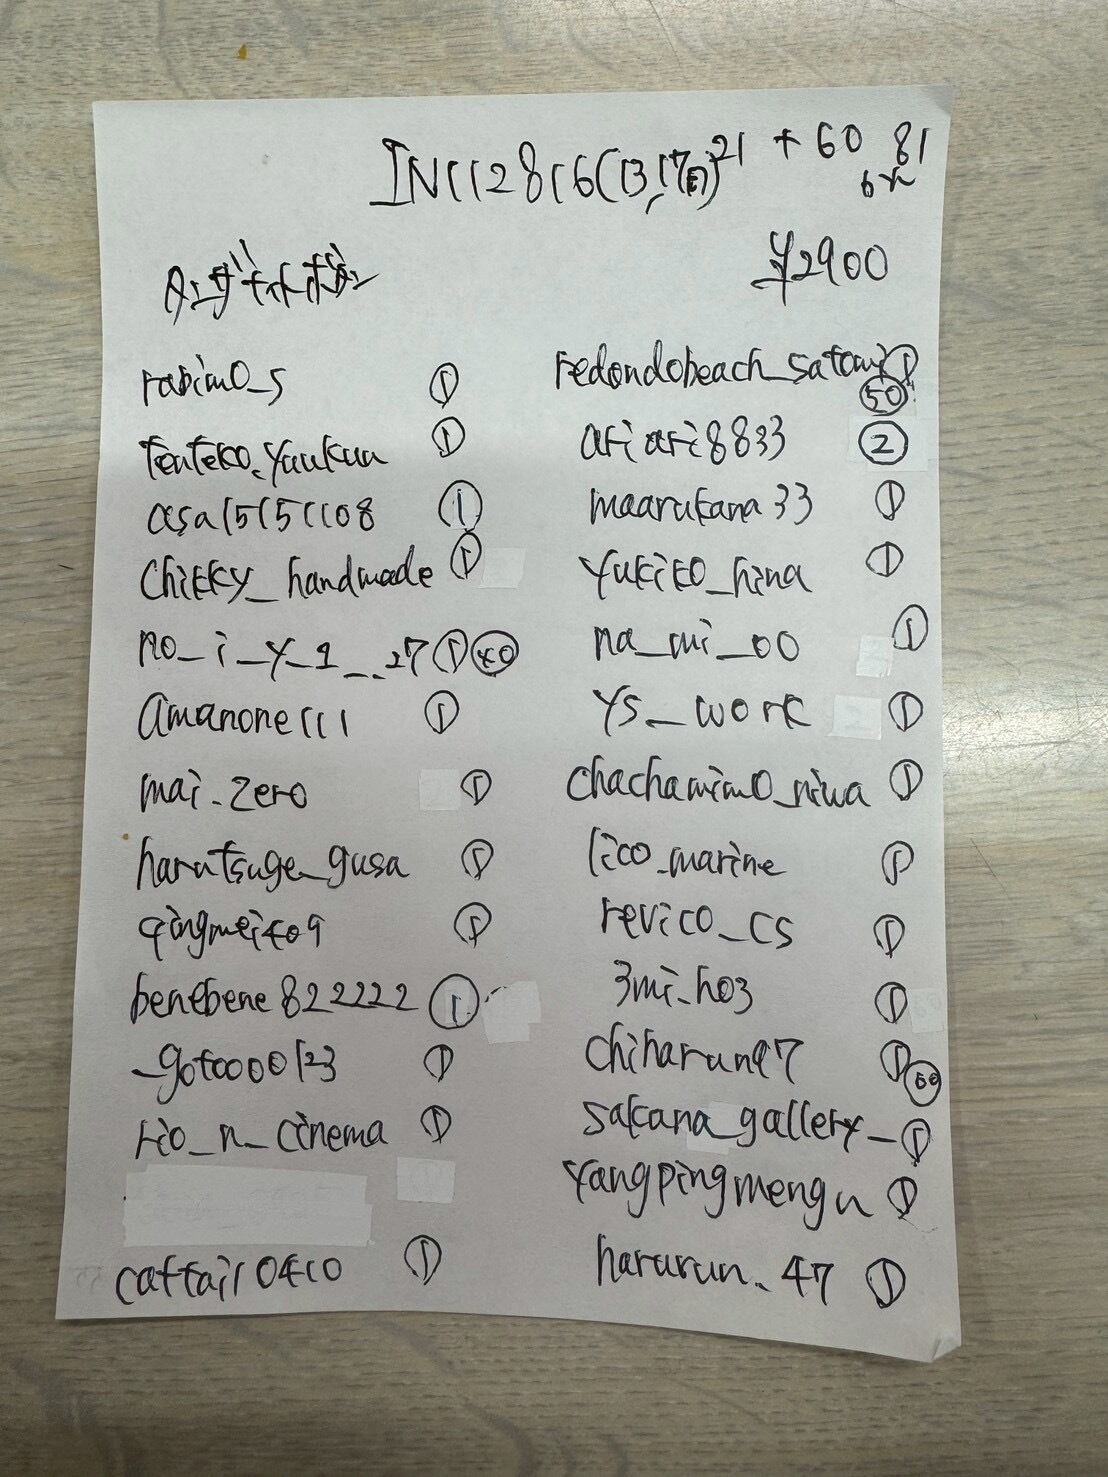 IN112816(13,17) 21 + 60 81
¥2900
rabimo_s ①
tenteko.yuukun ①
asa15151108 ①
chikky_handmade ①
no_i_y_1__.27 ① 40
amanone111 ①
mai.zero ①
harutsuge_gusa ①
qingmei409 ①
benebene822222 ①
_gotoooo123 ①
rio_n_cinema ①
cattail0410 ①
redondobeach_satomi ① 50
ariari8833 ②
maarukana33 ①
yukiko_hina ①
na_mi_00 ①
ys_work ①
chachamimo_niwa ①
lico_marine ①
revico_cs ①
3mi_ho3 ①
chiharun97 ① 60
sakana_gallery_ ①
yangpingmengu ①
harurun.47 ①